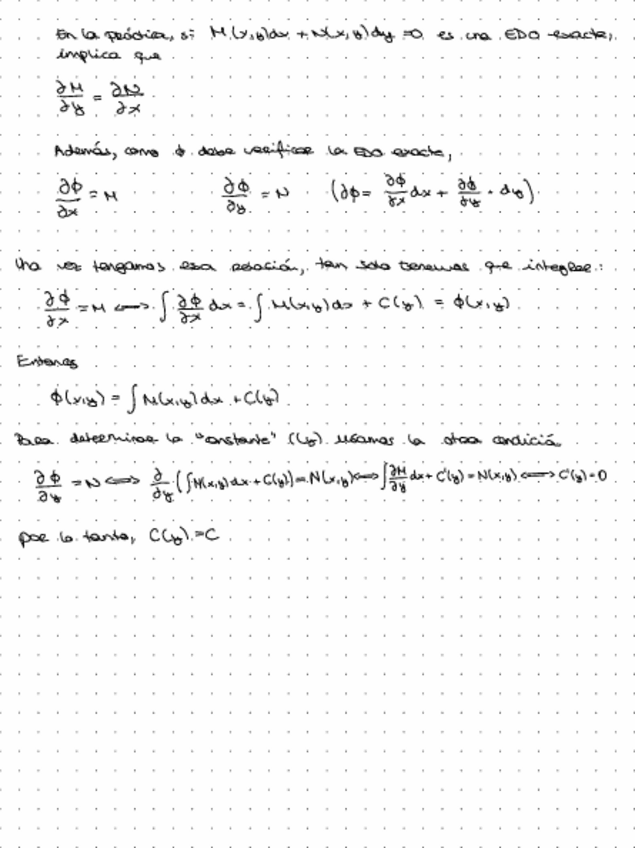 En la práctica, si M(x,y)dx + N(x,y)dy = 0 es una EDO exacta,
implica que
∂M/∂y = ∂N/∂x
Además, como ϕ debe verificar la EDO exacta,
∂ϕ/∂x = M ∂ϕ/∂y = N (∂ϕ = ∂ϕ/∂x dx + ∂ϕ/∂y · dy)
Una vez tengamos esa relación, tan solo tenemos que integrar:
∂ϕ/∂x = M ⟺ ∫ ∂ϕ/∂x dx = ∫ M(x,y)dx + C(y) = ϕ(x,y)
Entonces
ϕ(x,y) = ∫ M(x,y)dx + C(y)
Para determinar la "constante" C(y) usamos la otra condició
∂ϕ/∂y = N ⟺ ∂/∂y (∫M(x,y)dx + C(y)) = N(x,y) ⟺ ∫ ∂M/∂y dx + C'(y) = N(x,y) ⟺ C'(y) = 0
por lo tanto, C(y) = C